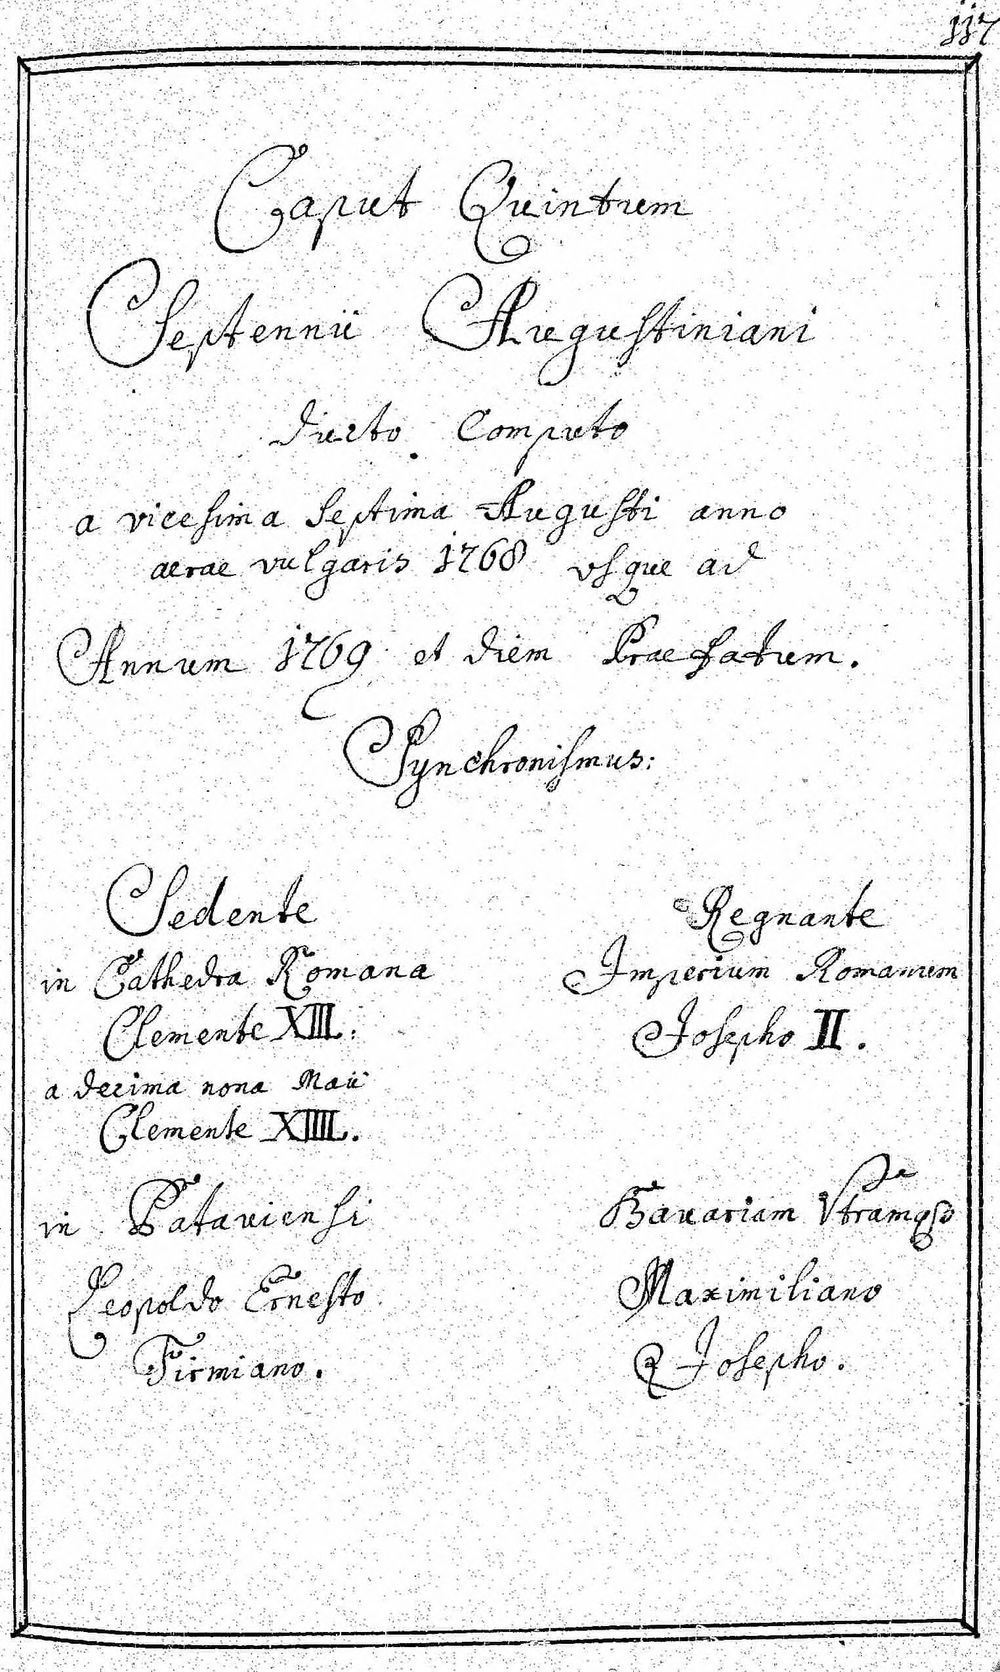 117
Caput Quintum
Septennii Augustiniani
ducto Computo
a vicesima septima Augusti anno
aerae vulgaris 1768 usque ad
Annum 1769 et diem Praefatum.
Synchronismus:
Sedente
in Cathedra Romana
Clemente XIII:
a decima nona Maii
Clemente XIIII.
in Pataviensi
Leopoldo Ernesto
Firmiano.
Regnante
Imperium Romanum
Josepho II.
Bavariam Utramq
Maximiliano
Josepho.